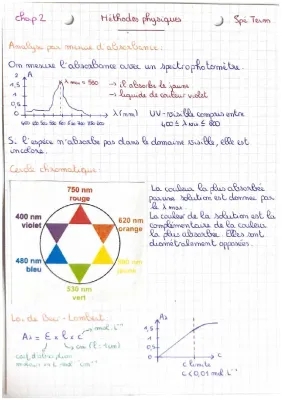 chap 2 Méthodes physiques Spé Term
Analyse par mesure d'absorbance :
On mesure l'absorbance avec un spectrophotomètre.
A
2
1,5
1
0,5
0
λ max = 580
→ il absorbe le jaune
→ liquide de couleur violet
λ (nm)
UV-visible compris entre
400 ≤ λ ≤ 800
Si l'espèce n'absorbe pas dans le domaine visible, elle est
incolore.
Cercle chromatique :
750 nm
rouge
400 nm
violet
620 nm
orange
480 nm
bleu
jaune
530 nm
vert
La couleur la plus absorbée
par une solution est donnée par
la λ max.
La couleur de la solution est la
complémentaire de la couleur
la plus absorbée. Elles sont
diamétralement opposées.
Loi de Beer-Lambert :
Aλ = ε × l × c
mol.L⁻¹
cm (l = 1 cm)
coef d'absorption
A
1,5
1
0,5
c
c limite
c < 0,01 mol.L⁻¹